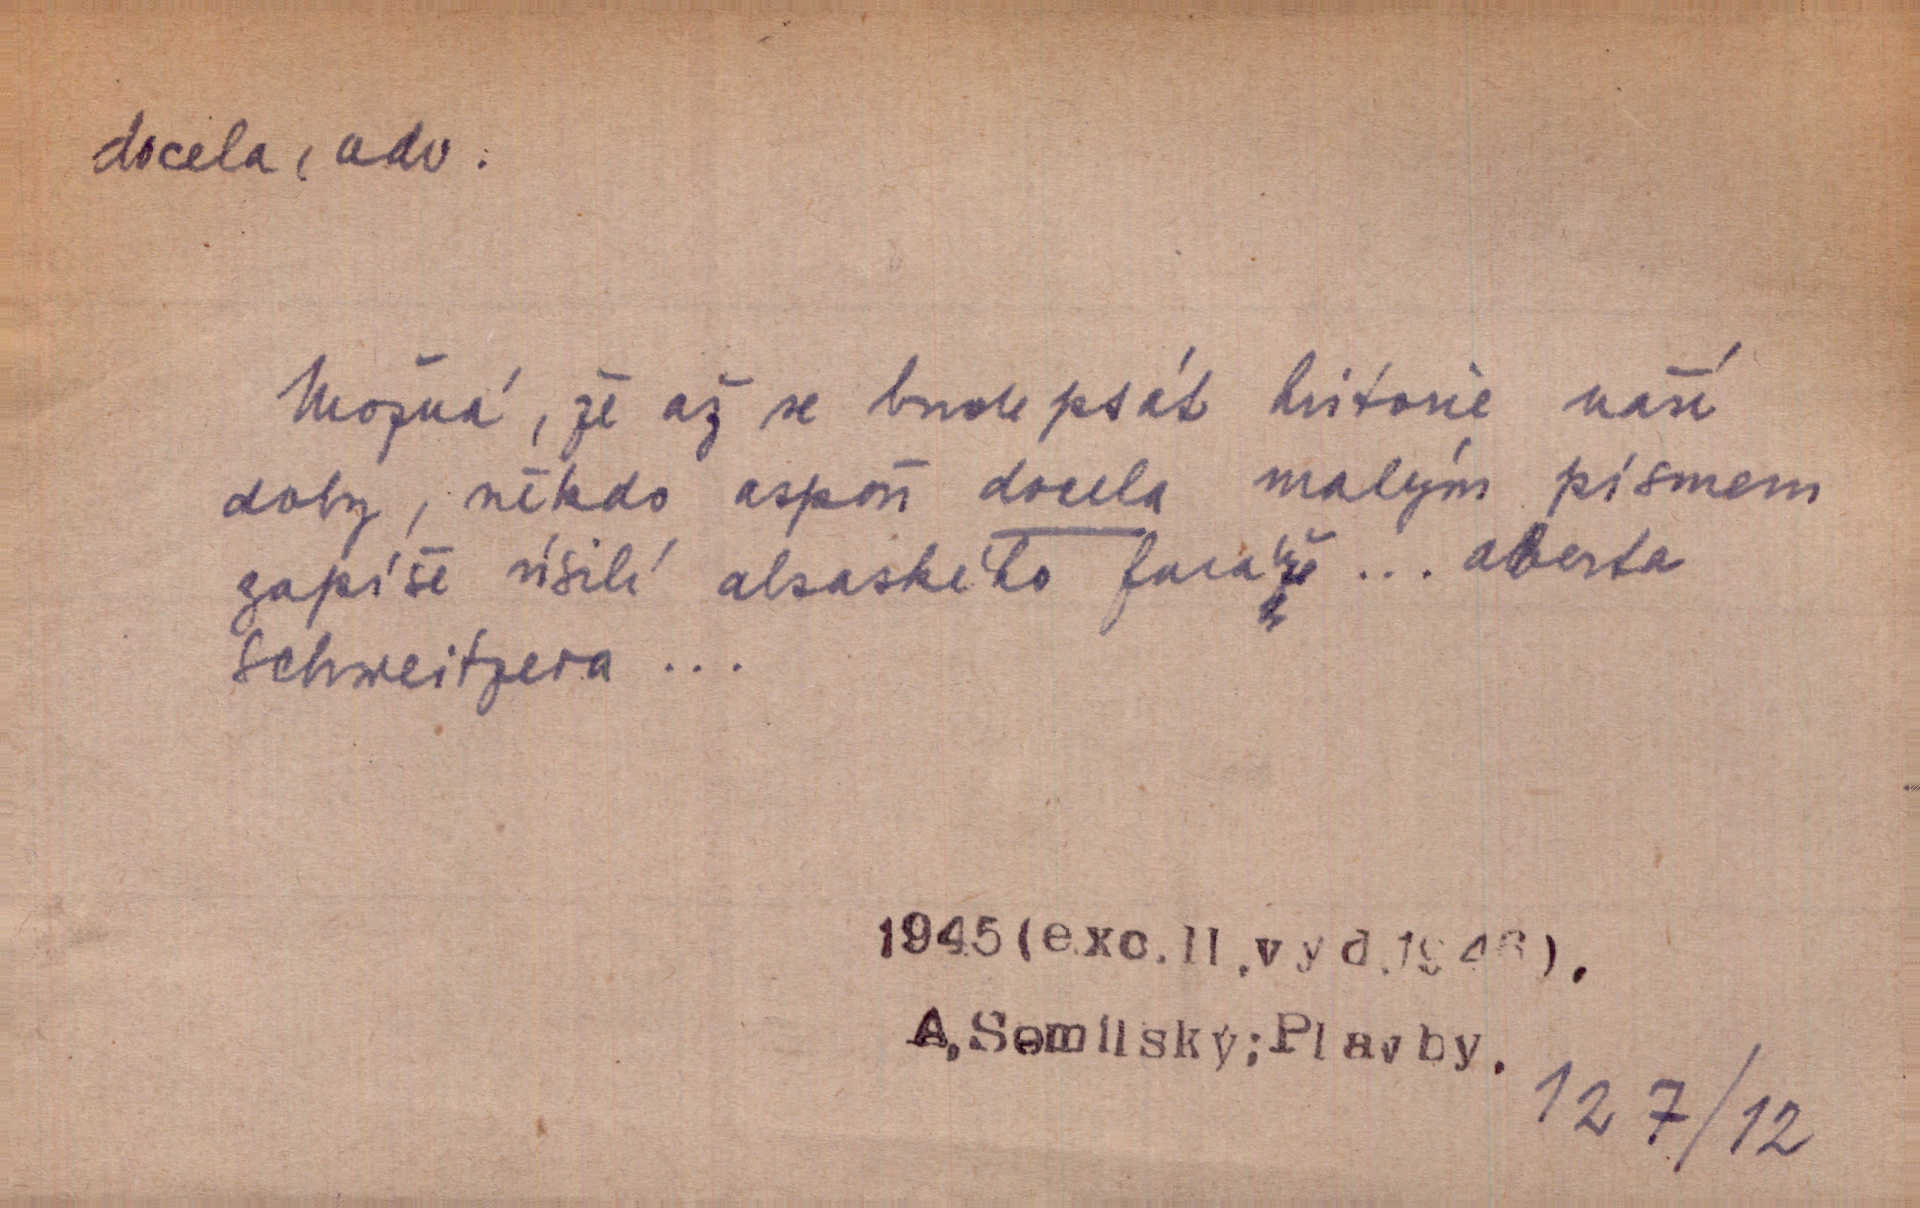 docela, adv.
Možná, že až se bude psát historie naší
doby, někdo aspoň docela malým písmem
zapíše úsilí alsaského faráře ... alberta
Schweitzera ...
1945(exc.II.vyd.1946).
A.Semilský;Plavby.
127/12